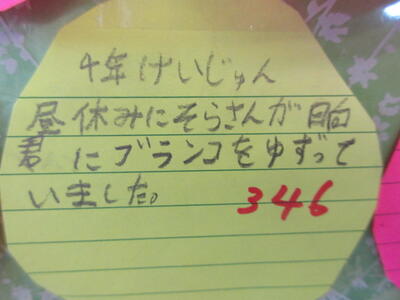 4年けいじゅん
昼休みにそらさんが日向
君にブランコをゆずって
いました。
346